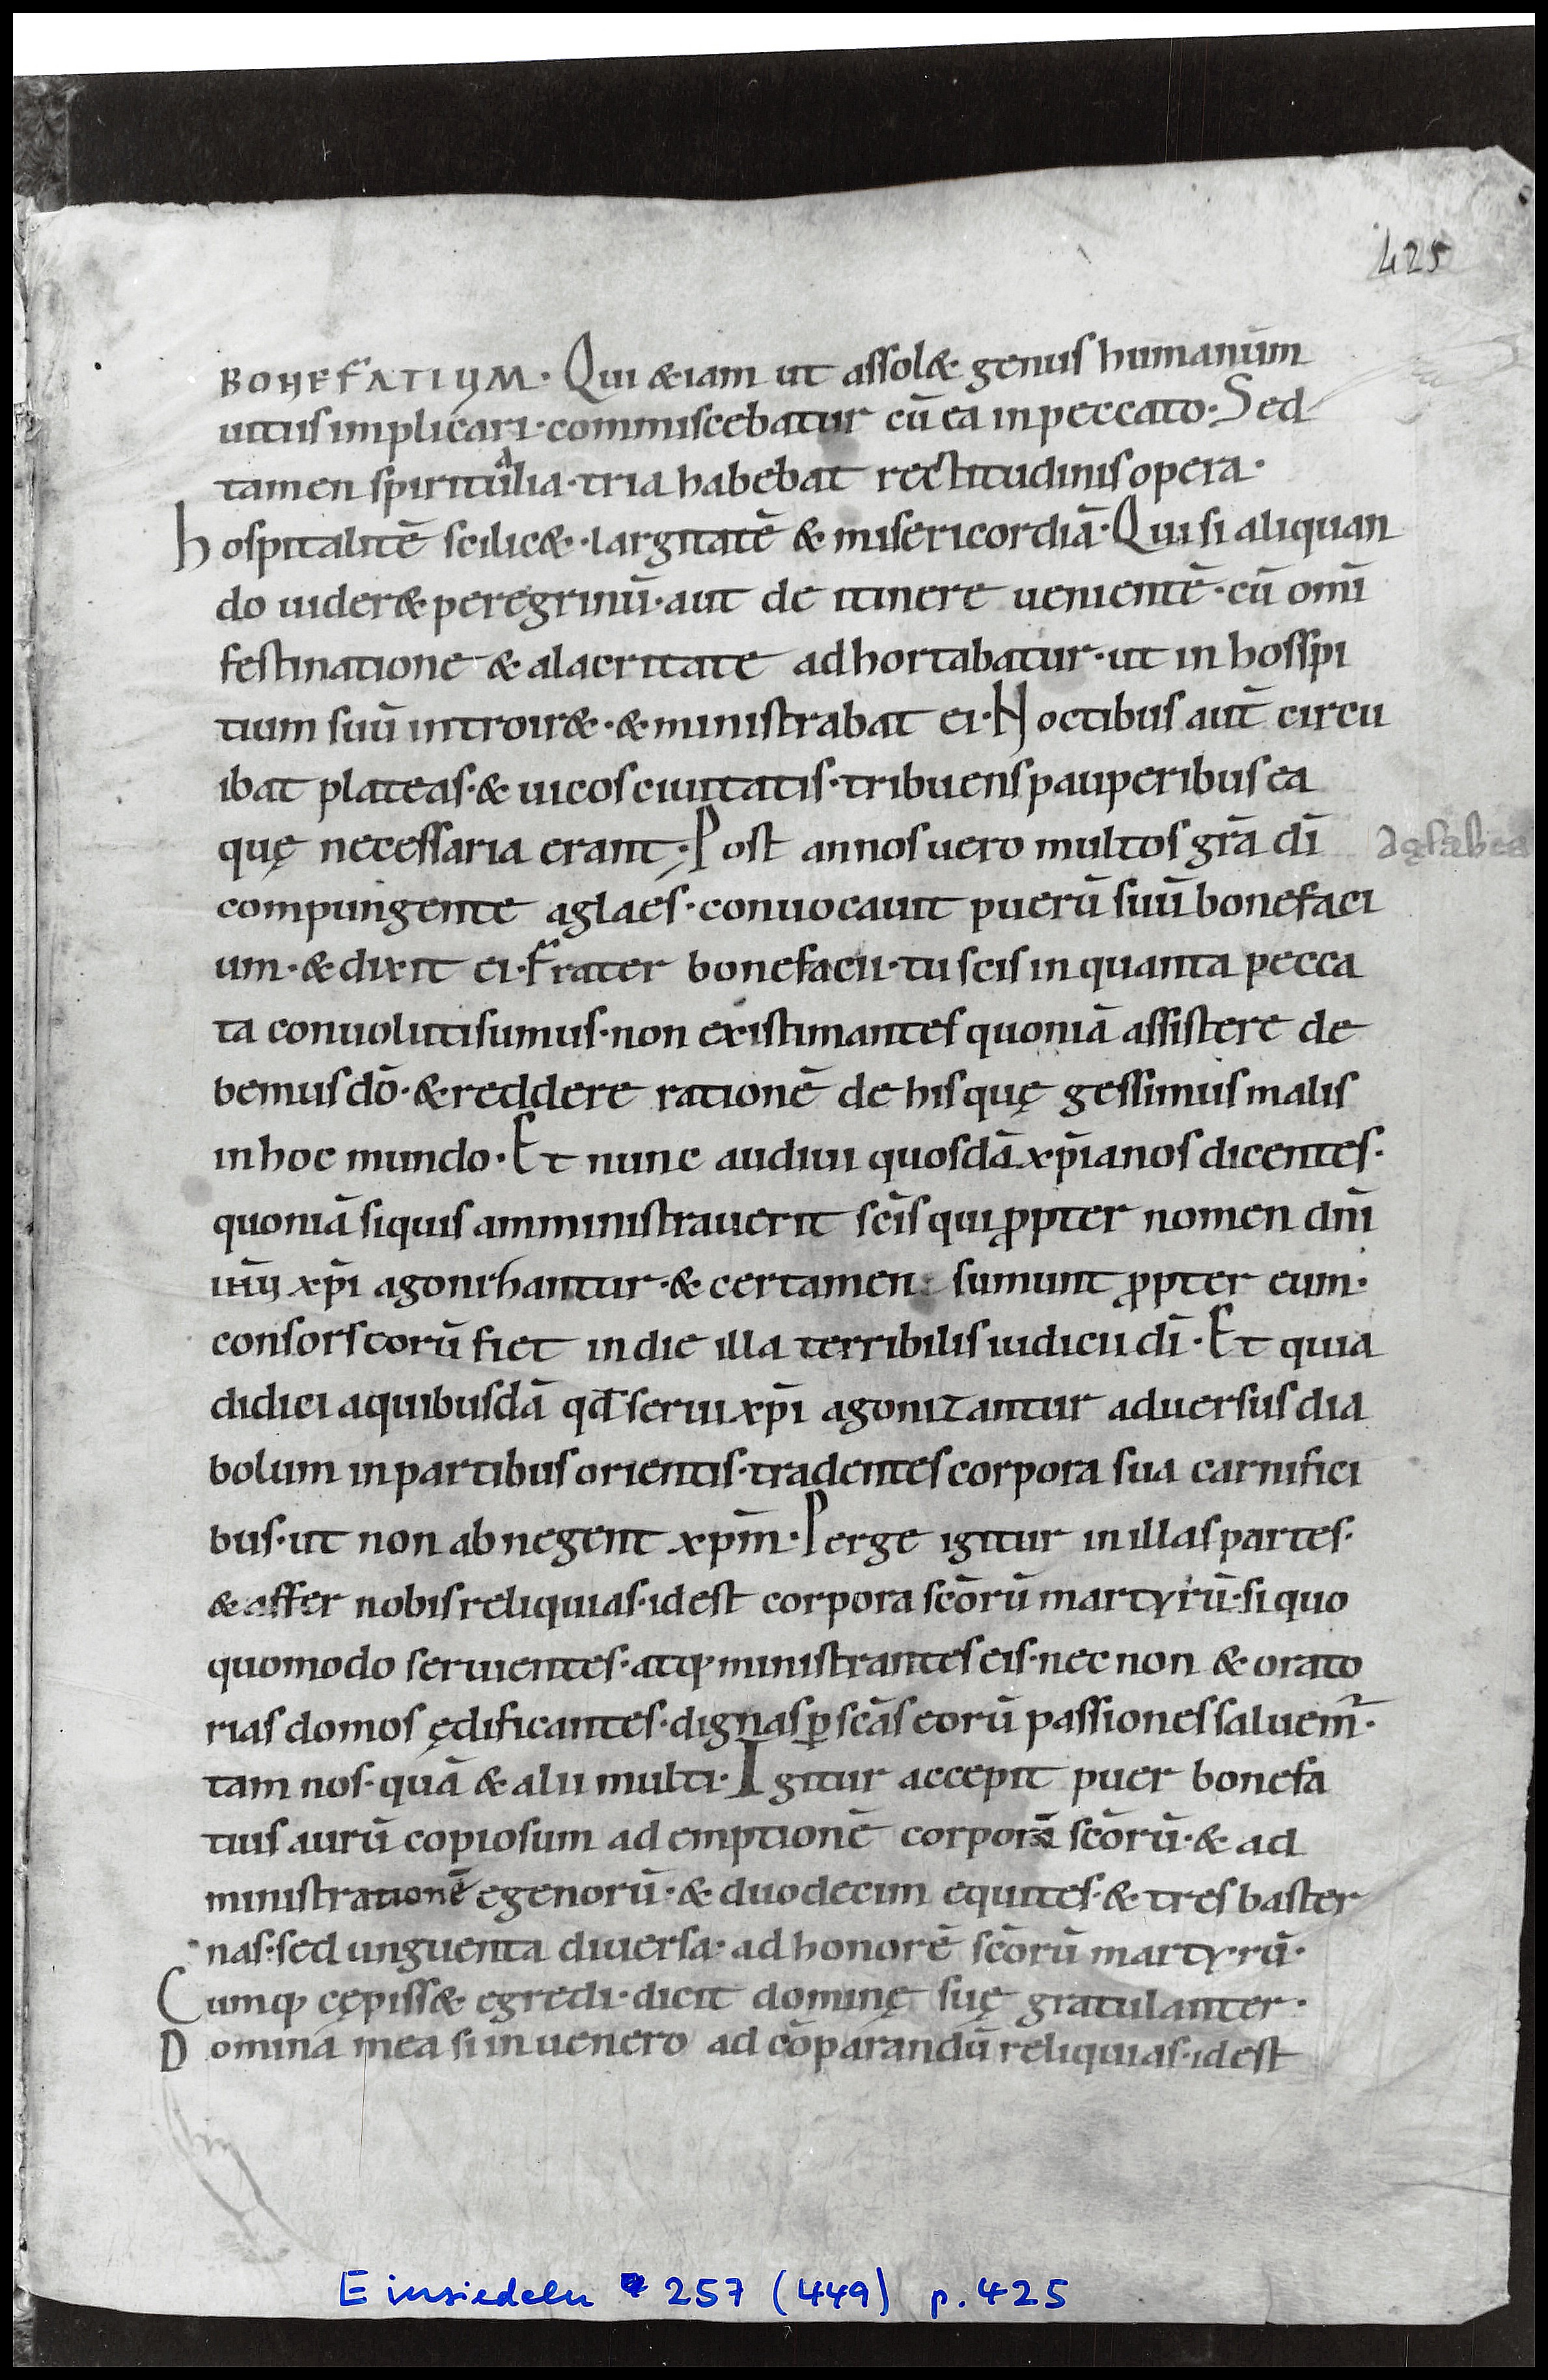 425
BONEFATIUM· Qui &iam ut assol& genus humanum
uitiis implicari· commiscebatur cū ea in peccato· Sed
tamen spiritualia· tria habebat rectitudinis opera·
hospitalitē scilic&· largitatē & misericordiā· Qui si aliquan
do uider& peregrinū· aut de itinere uenientē· cū omī
festinatione & alacritate adhortabatur· ut in hosspi
tium suū introir&· & ministrabat ei· Noctibus aut̄ circu
ibat plateas· & uicos ciuitatis· tribuens pauperibus ea
quę necessaria erant; Post annos uero multos grā dī
compungente aglaes· conuocauit puerū suū bonefaci
um· & dixit ei· Frater bonefacii· tu scis in quanta pecca
ta conuoluti sumus· non existimantes quoniā assistere de
bemus dō· & reddere rationē de his quę gessimus malis
in hoc mundo· Et nunc audiui quosdā xp̄ianos dicentes·
quoniā siquis amministrauerit scīs qui ꝓpter nomen dnī
xp̄i agonihantur· & certamen· sumunt ꝓpter eum·
consors eorū fiet in die illa terribilis iudicii dī· Et quia
didici a quibusdā qd̄ serui xp̄i agonizantur aduersus dia
bolum in partibus orientis· tradentes corpora sua carnifici
bus· ut non abnegent xpm̄· Perge igitur in illas partes·
& affer nobis reliquias· id est corpora scōrū martyrū· si quo
quomodo seruientes· atq; ministrantes eis· nec non & orato
rias domos ędificantes· dignas ꝑ scās eorū passiones saluem̄·
tam nos· quā & alii multi· Igitur accepit puer bonefa
tius aurū copiosum ad emptionē corporū scōrū· & ad
ministrationē egenorū· & duodecim equites· & tres baster
nas· sed unguenta diuersa· ad honorē scōrū martyrū·
Cumq; cępiss& egredi· dicit dominę suę gratulanter·
Domina mea si inuenero ad cōparandū reliquias· id est
Einsiedeln 257 (449) p. 425